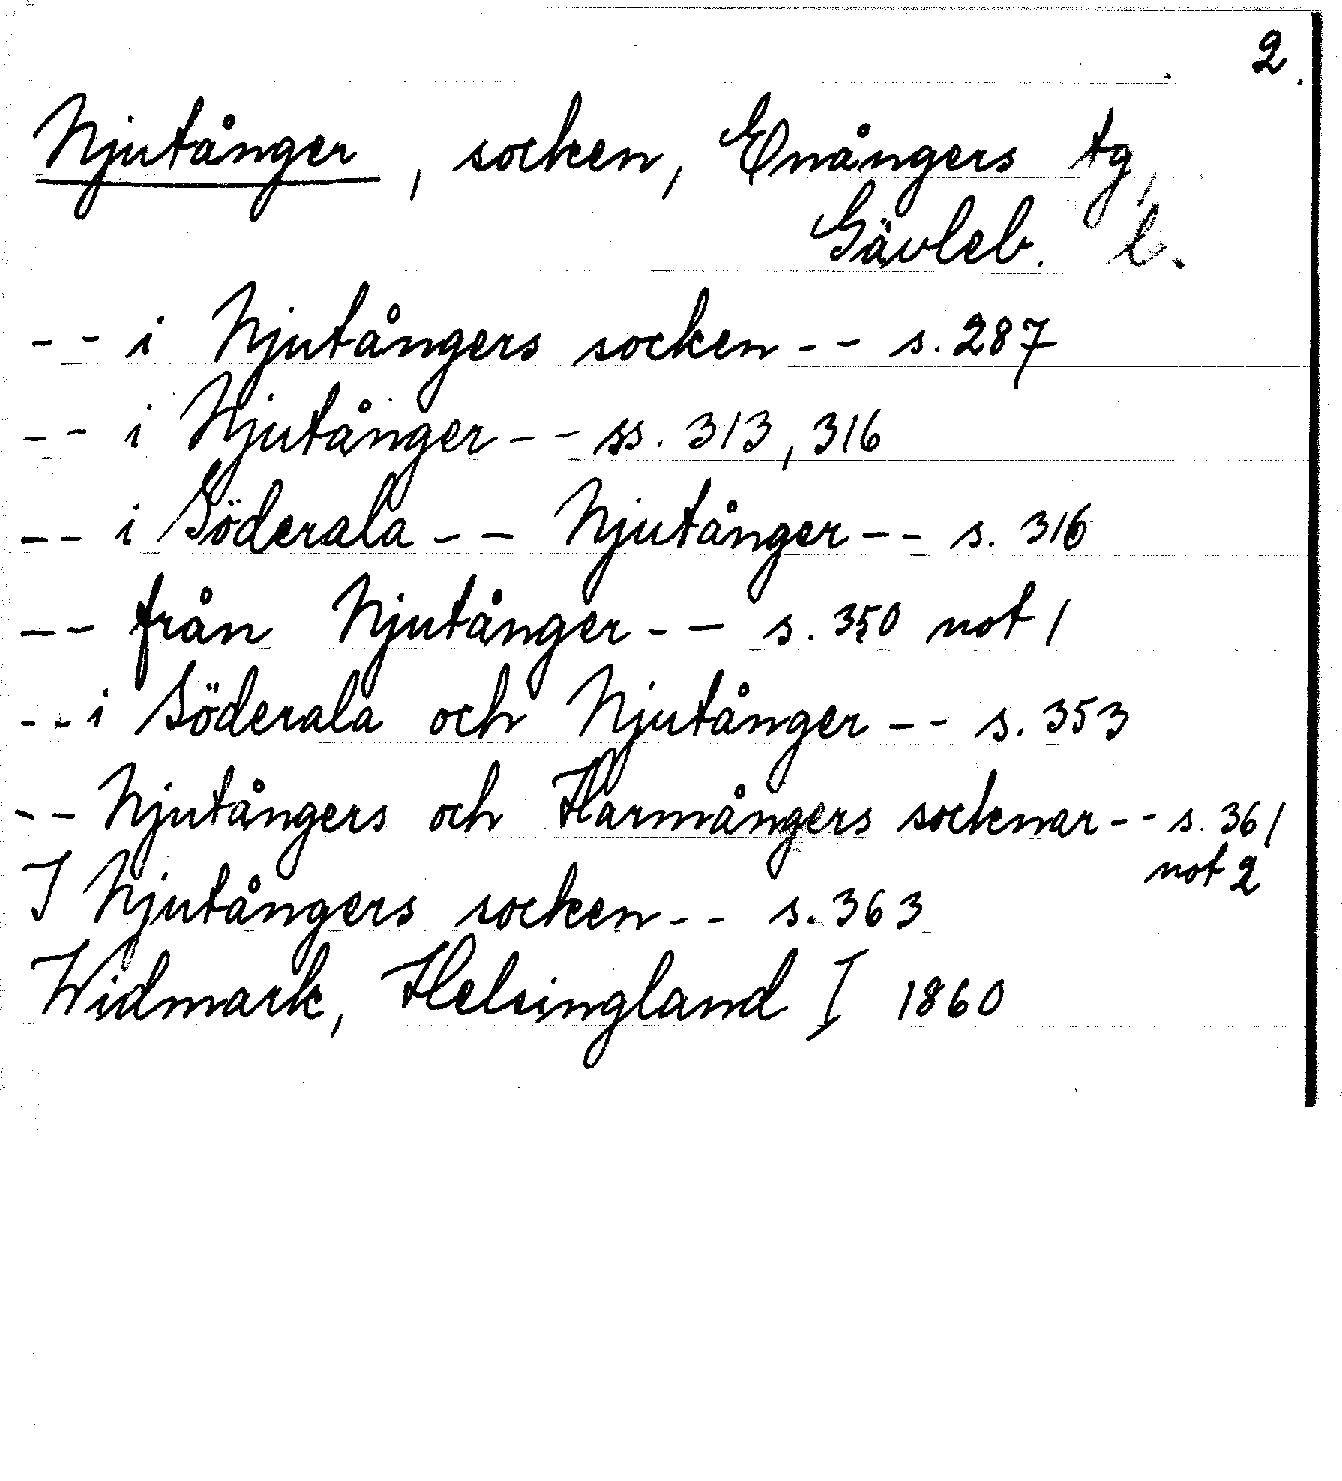 2.
Njutånger, socken, Enångers tg,
Gävleb. l.
-- i Njutångers socken -- s. 287
-- i Njutånger -- ss. 313, 316
-- i Söderala -- Njutånger -- s. 316
-- från Njutånger -- s. 350 not 1
-- i Söderala och Njutånger -- s. 353
-- Njutångers och Harmångers socknar -- s. 361
not 2
I Njutångers socken -- s. 363
Widmark, Helsingland I 1860